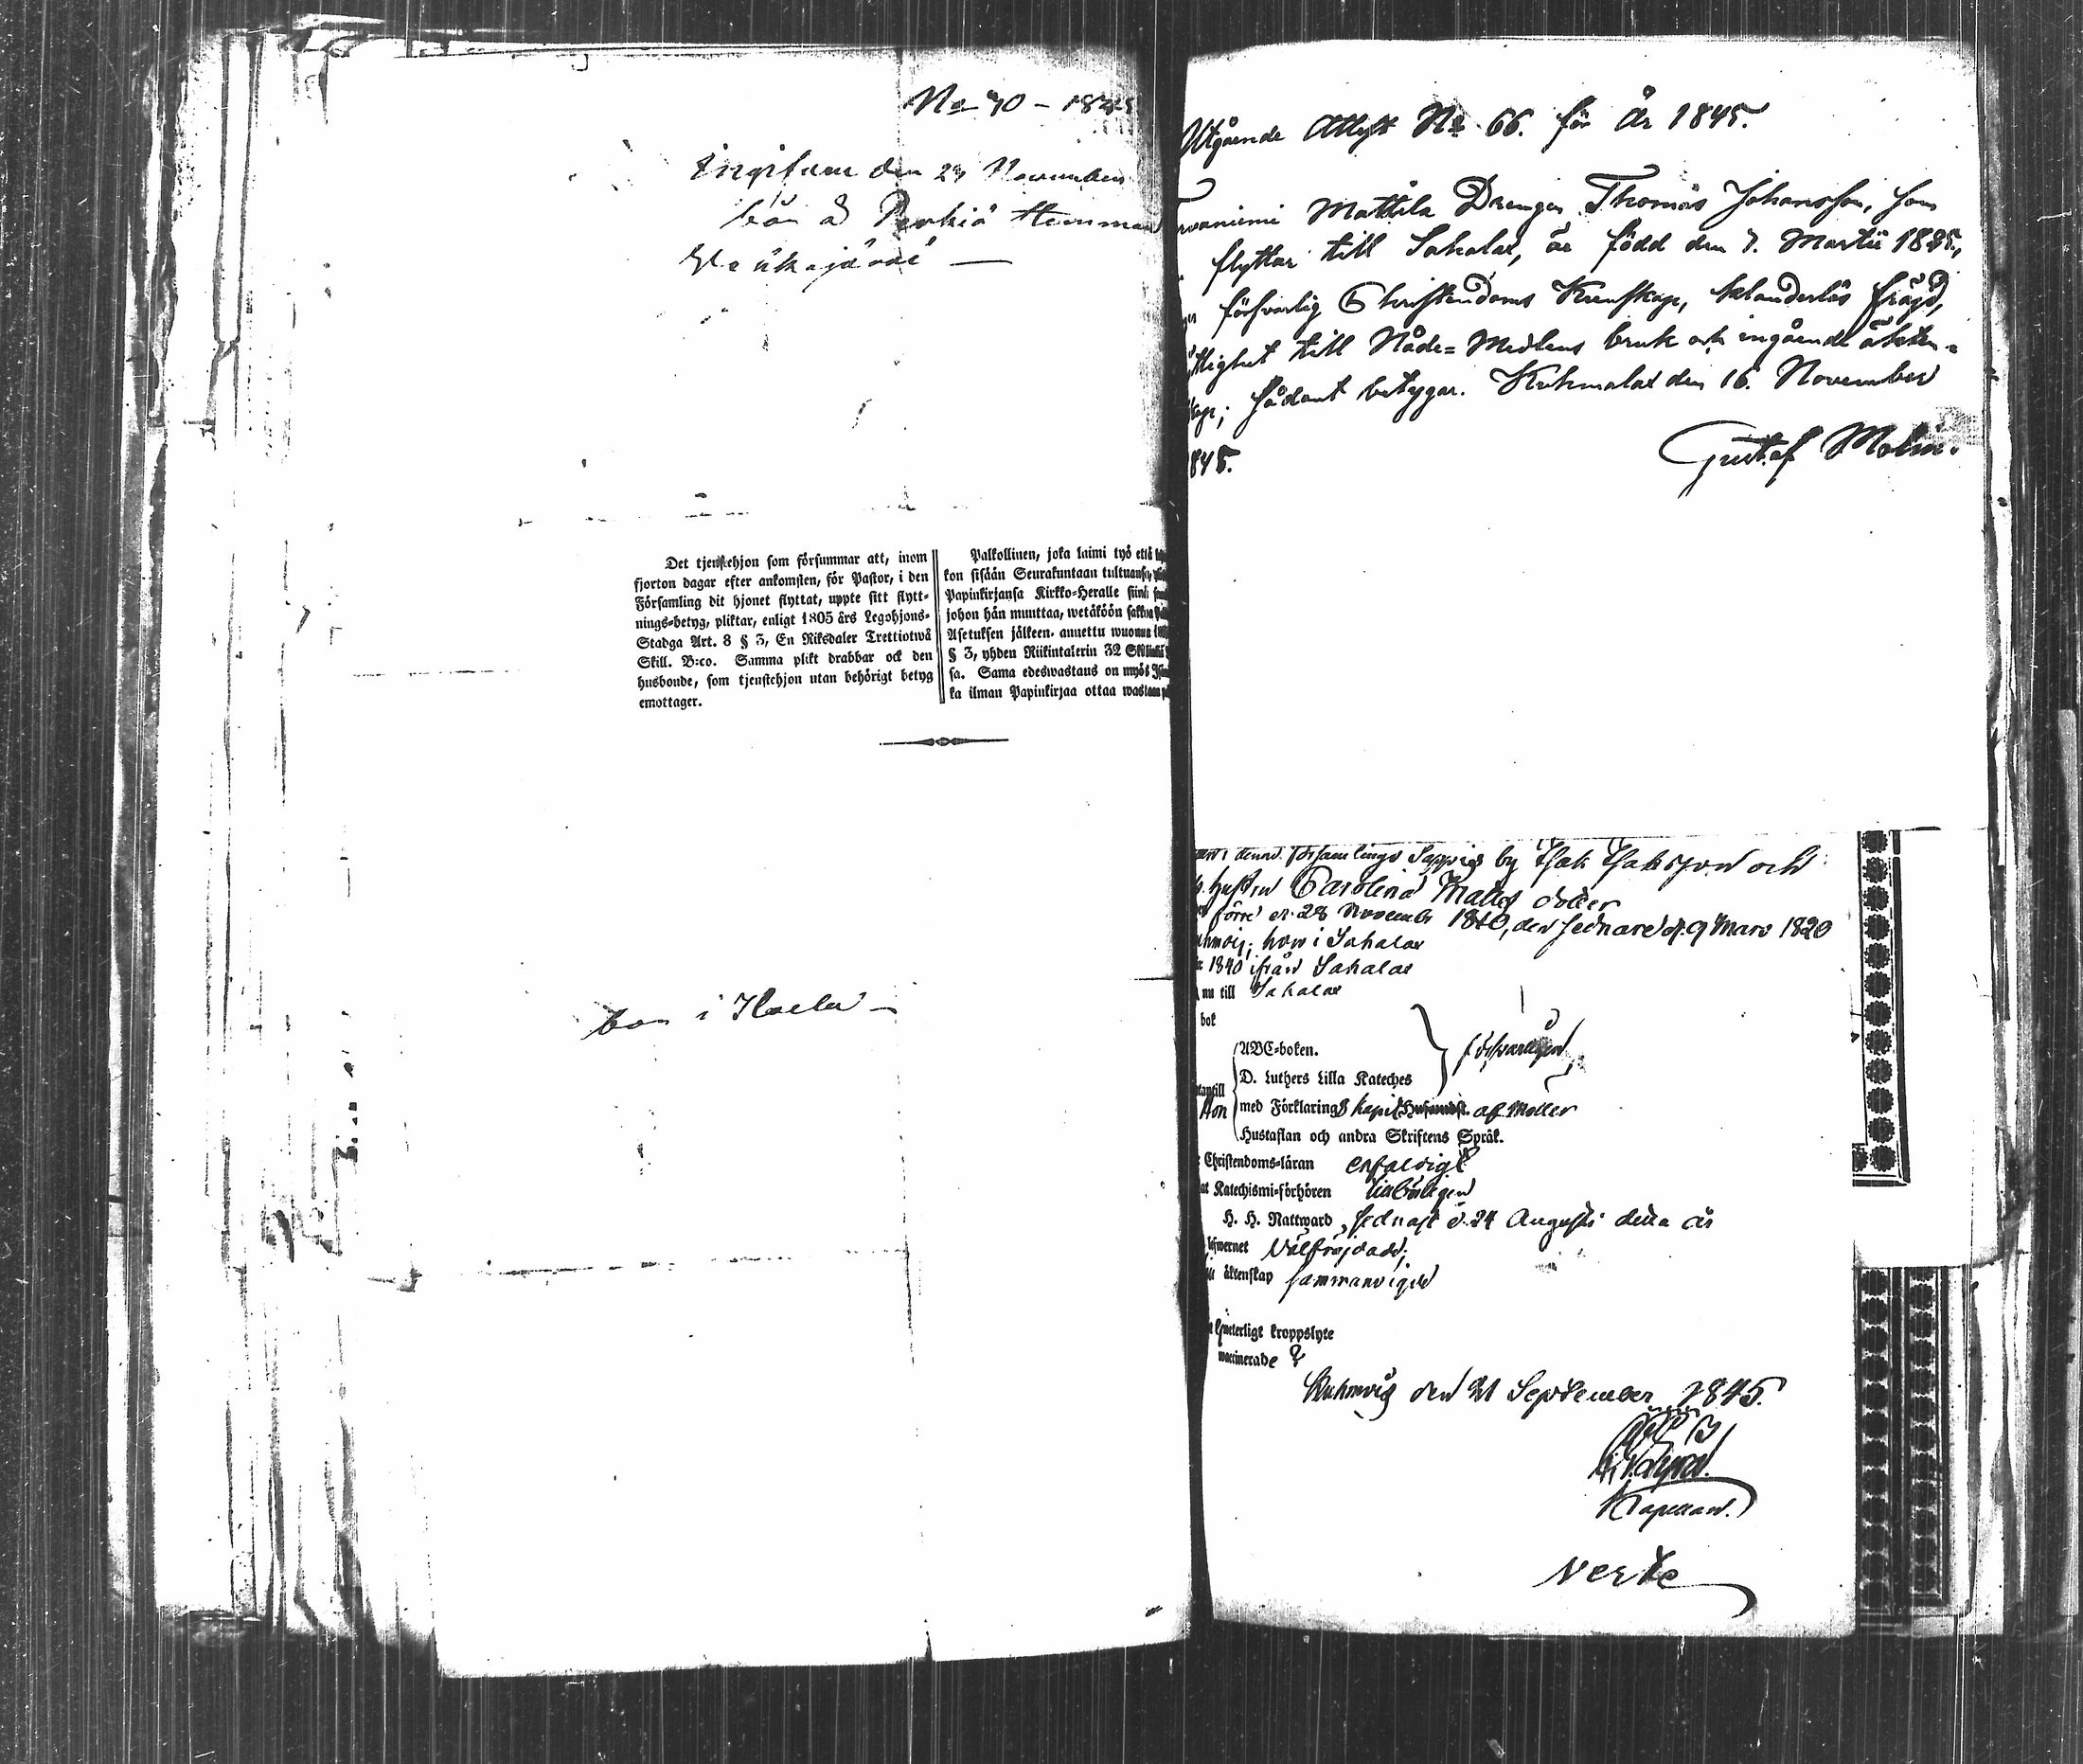 No 70 – 1845
den 23 November
bör å Penkiä Hemman
Det tjenstehjon som försummar att, inom
fjorton dagar efter ankomsten, för Pastor, i den
Församling dit hjonet flyttat, uppte sitt flytt-
nings-betyg, pliktar, enligt 1805 års Legohjons-
Stadga Art. 8 § 3, En Riksdaler Trettiotwå
Skill. B:co. Samma plikt drabbar ock den
husbonde, som tjenstehjon utan behörigt betyg
emottager.
Palkollinen, joka laimi työ että
kon sisään Seurakuntaan tultuansa,
Papinkirjansa Kirkko-Heralle siinä
johon hän muuttaa, wetäköön sakkoa
Asetuksen jälkeen annettu wuonna
§ 3, yhden Riikintalerin 32 Skillinkiä
sa. Sama edeswastaus on myös
ka ilman Papinkirjaa ottaa wastaan
bor i
Utgående Attest No 66. för År 1845.
Mattila Drengen Thomas Johansson, som
flyttar till Sahalax, är född den 7. Martii 1825,
försvarlig Christendoms Kunskap, oklanderlig frägd,
till Nåde-Medlens bruk och ingående äkten-
skap; sådant betygar. Kuhmalax den 16. November
1845.
Gustaf Molin.
denna Församlings Sappig by Isak Isaksson och
Hustru Carolina Matts dotter
förre d. 28 November 1810, den sednare d. 9 Mars 1820
hon i Sahalax
1840 ifrån Sahalax
nu till Sahalax
bok
ABC-boken.
D. Luthers Lilla Kateches
försvarligen
Hon med Förklaring 3 kapit af Möller
Hustaflan och andra Skriftens Språk.
Christendoms-läran enfaldigt
Katechismi-förhören
H. H. Nattward, sednast d. 24 Augusti detta år
Välfrejdade;
äktenskap sammanvigde
kroppslyte
waccinerade
Kuhmois den 21 September 1845.
Kapellan.